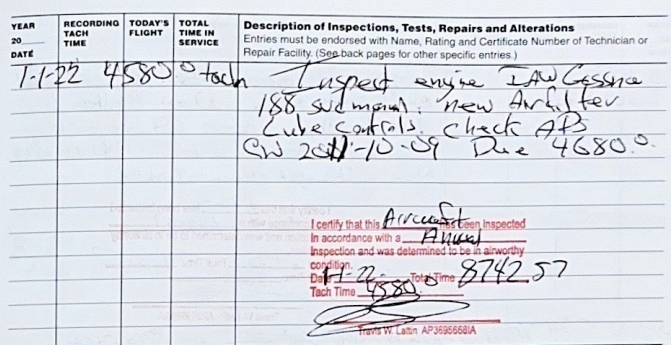 YEAR
20
DATE
RECORDING
TACH
TIME
TODAY'S
FLIGHT
TOTAL
TIME IN
SERVICE
Description of Inspections, Tests, Repairs and Alterations
Entries must be endorsed with Name, Rating and Certificate Number of Technician or
Repair Facility. (See back pages for other specific entries.)
1-1-22 4580.0 tach Inspect engine IAW Cessna
188 svc manual. new Air filter
Lube controls. Check ADs
CW 2011-10-09 Due 4680.0.
I certify that this Aircraft has been Inspected
In accordance with a Annual
Inspection and was determined to be in airworthy
condition.
Date 1-1-22 Total Time 8742.57
Tach Time 4580.0
Travis W. Lattin AP3695668IA